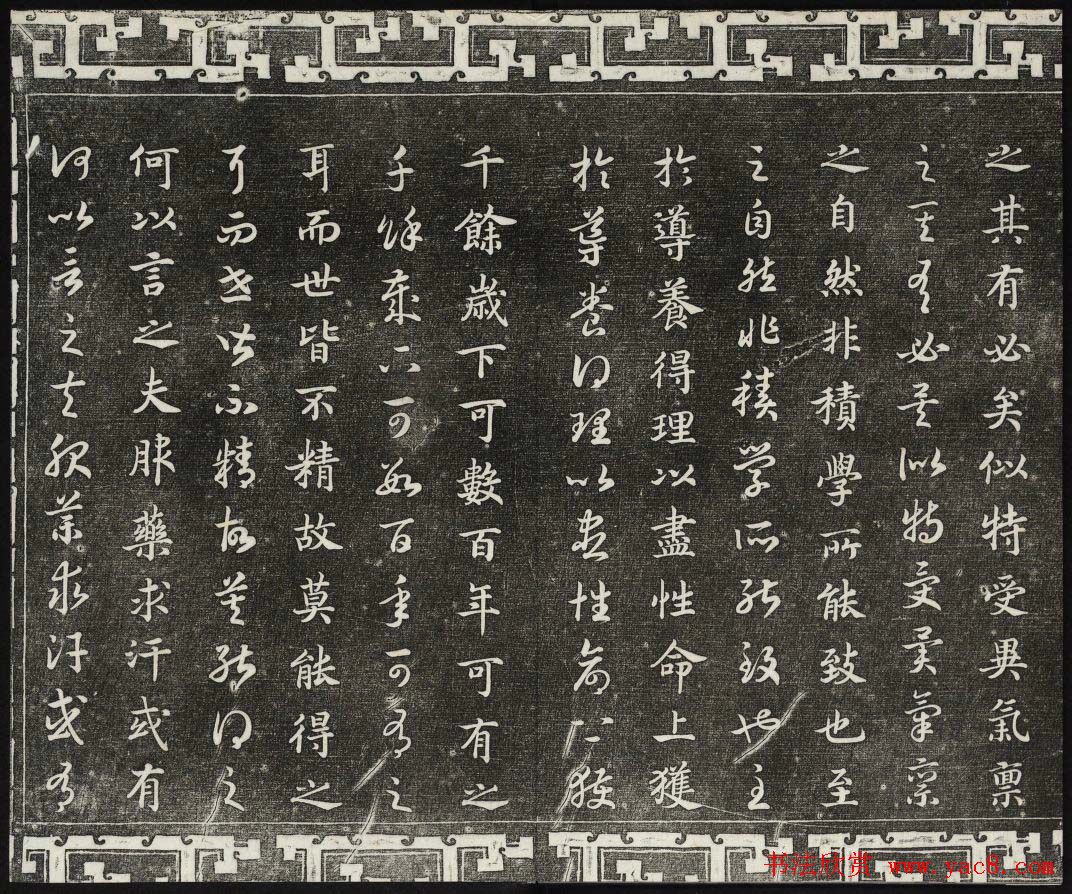 之其有必矣似特受異氣禀
之其有必矣似特受異氣禀
之自然非積學所能致也至
之自然非積學所能致也至
於導養得理以盡性命上獲
於導養得理以盡性命上獲
千餘歲下可數百年可有之
千餘歲下可數百年可有之
耳而世皆不精故莫能得之
耳而世皆不精故莫能得之
何以言之夫服藥求汗或有
何以言之夫服藥求汗或有
书法欣赏 www.yac8.com